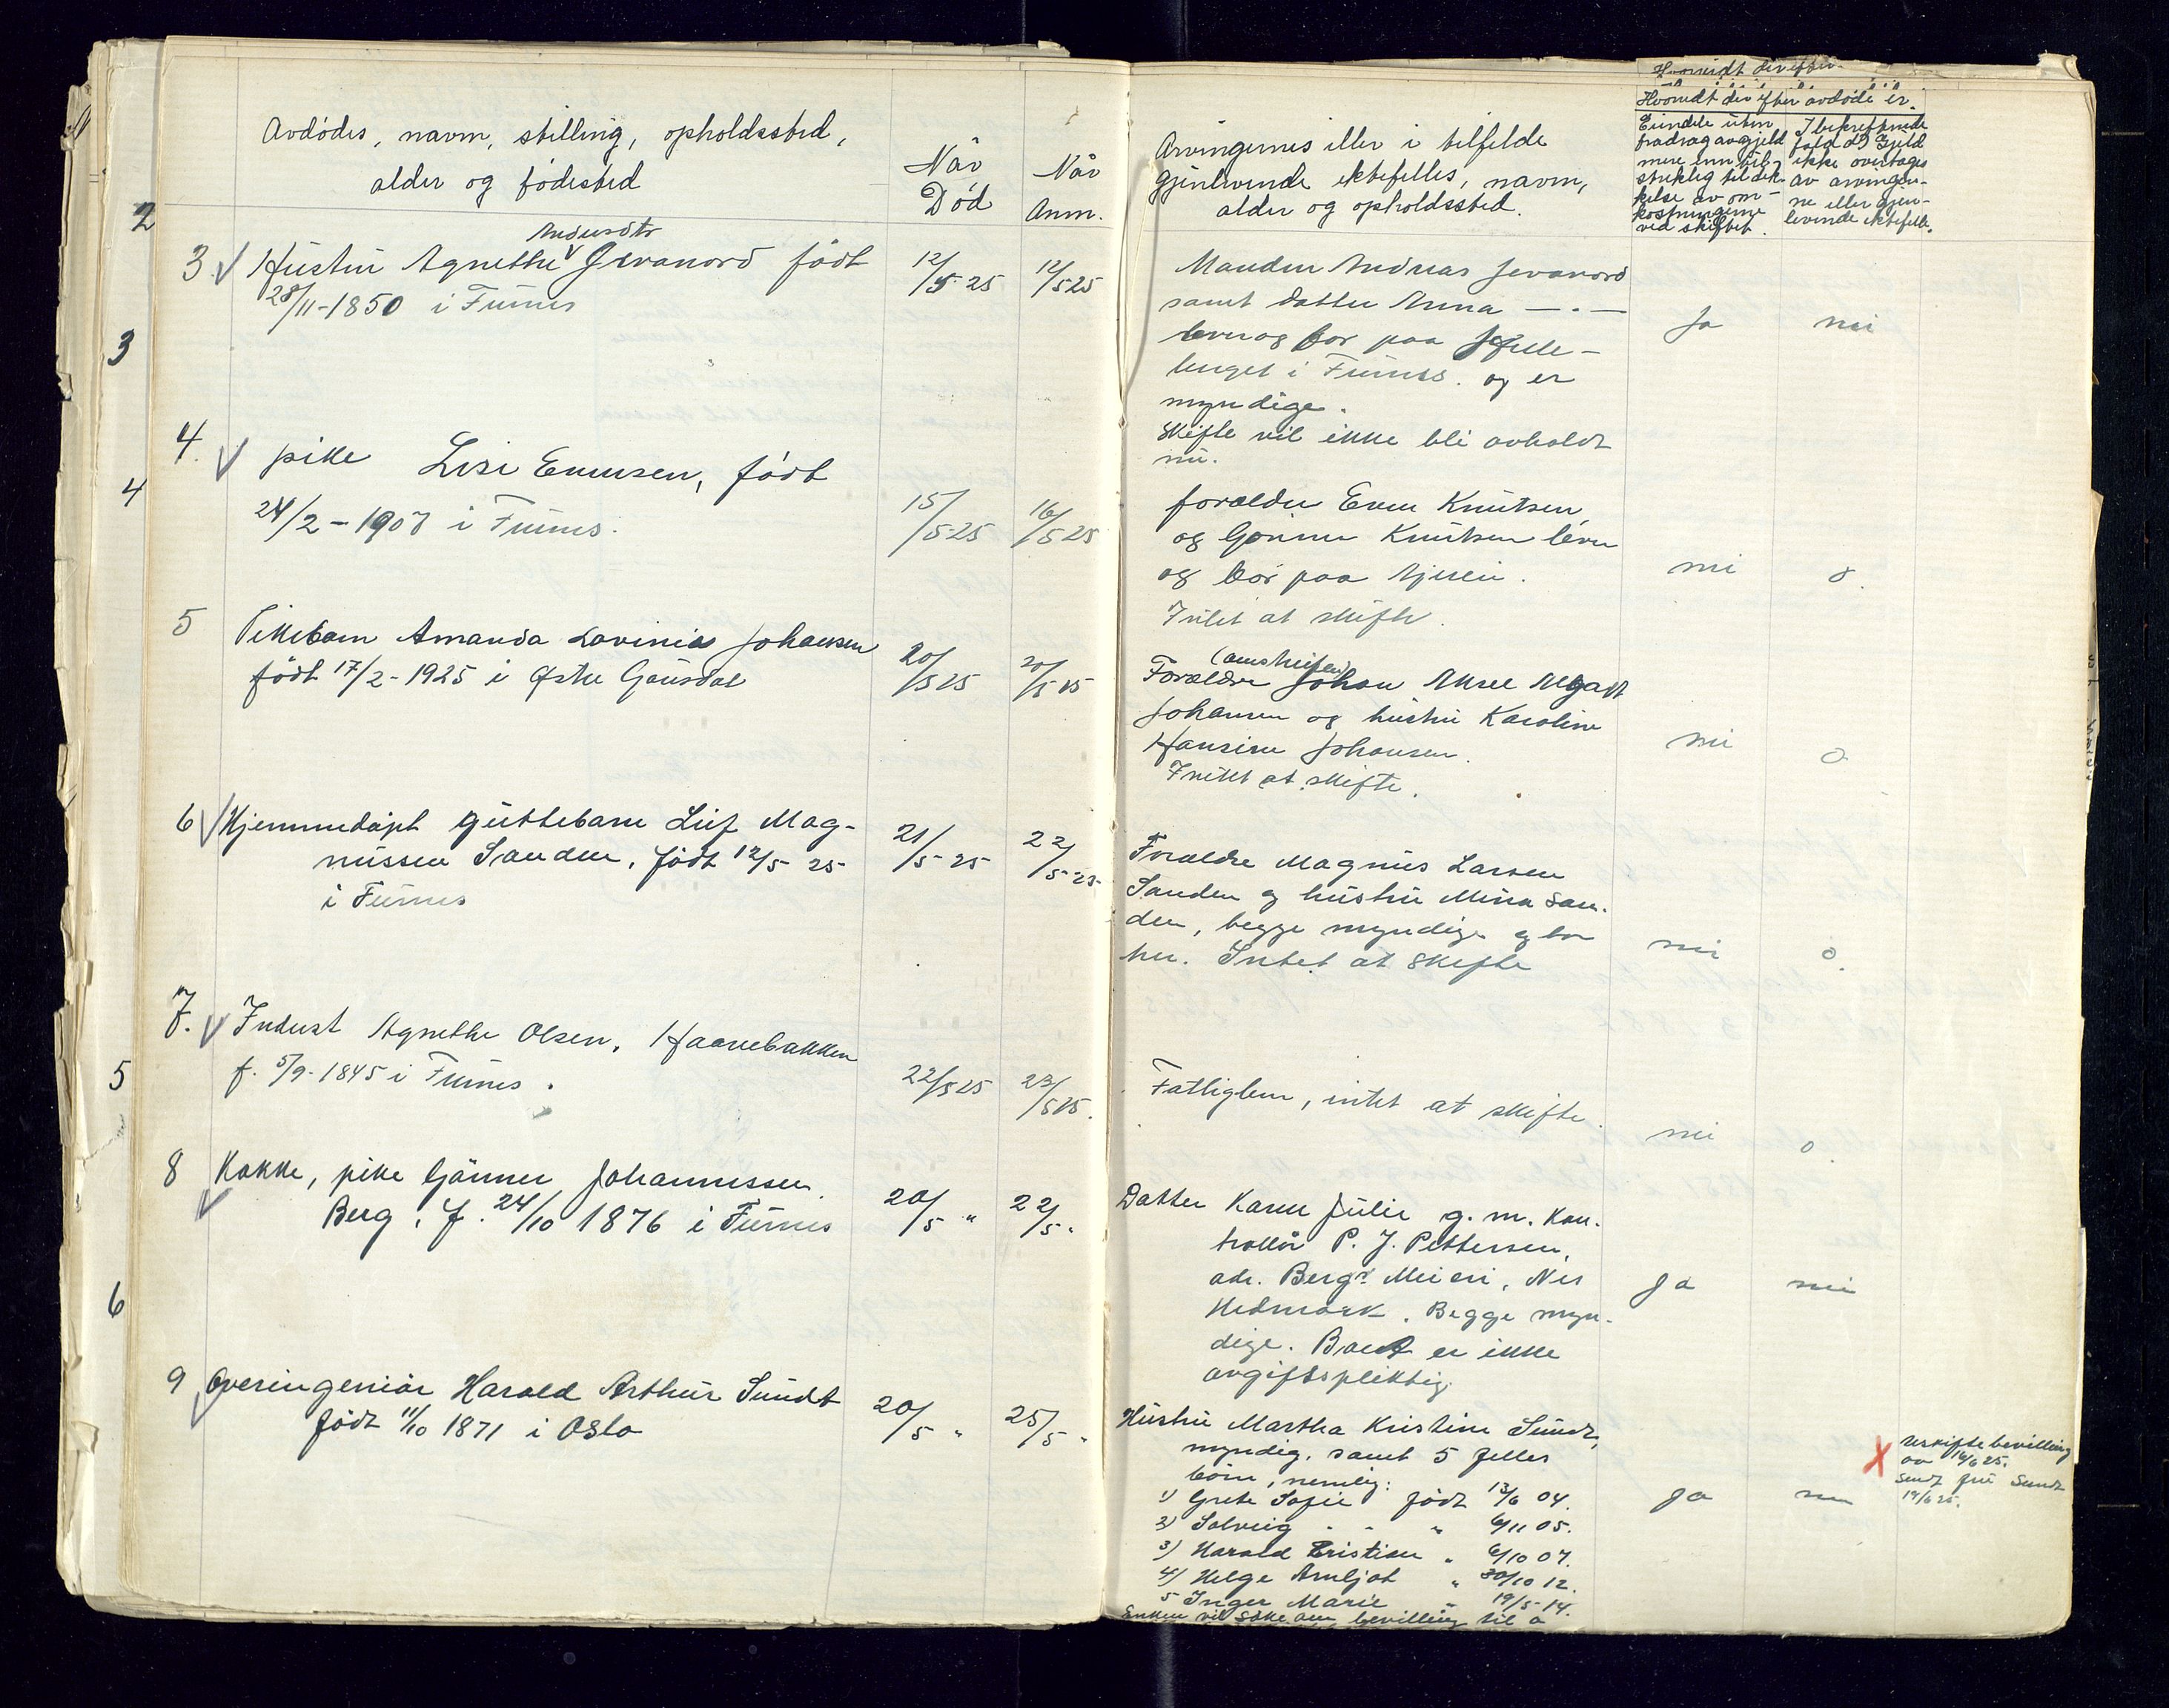 Avdödes, navn, stilling, opholdssted,
alder og födested
Når
Död
Når
Anm.
Arvingernes eller i tilfelde
gjenlevende ektefelles, navn,
alder og opholdssted.
Hvorvidt der efter
Hvorvidt der efter avdöde er.
Eiendele uten
fradrag av gjeld
mere enn til-
strekkelig til dek-
kelse av om-
kostningerne
ved skiftet.
I bekreftende
fald då Gjeld
ikke overtages
av arvinger-
ne eller gjen-
levende ektefelle.
2
3
4
5
6
3. Hustru Agnethe Andersdtr Jevanord födt
28/11-1850 i Furnes
12/5-25
12/5 25
Manden Andreas Jevanord
samt datter Anna — . —
lever og bor paa
i Furnes. og er
myndige.
Skifte vil ikke bli avholdt
nu.
Ja
nei
4. pike Lisi Evensen, födt
24/2-1907 i Furnes.
15/5-25
16/5 25
foreldre Even Knutsen
og Gunner Knutsen lever
og bor paa
Intet at skifte.
nei
0.
5 Pikebarn Amanda Lovinia Johansen
födt 17/2-1925 i Östre Gausdal
20/5 25
20/5 25
Foreldre Johan Aksel
Johansen og hustru Karoline
Hansine Johansen.
Intet at skifte.
nei
0
6 Hjemmedöpt guttebarn Leif Mag-
nussen Sanden, födt 12/5 25
i Furnes
21/5-25
22/5-25
Foreldre Magnus Larsen
Sanden og hustru Mina San-
den, begge myndige og bor
her. Intet at skifte
nei
0.
7. Inderst Agnethe Olsen, Haavebakken
f. 5/9-1845 i Furnes.
22/5 25
23/5 25.
Fattiglem, intet at skifte.
nei
0.
8 Kokke, pike Gunner Johannessen
Berg, f. 24/10 1876 i Furnes
20/5 "
22/5 "
Datter Karen Julie g. m. kon-
trollör P. J. Pettersen,
adr. Bergs Meieri, Nes
Hedmark. Begge myn-
dige. Boet er ikke
avgiftspliktig.
Ja
nei
9 Overingeniör Harald Arthur Sundt
födt 11/10 1871 i Oslo
20/5 "
25/5 "
Hustru Martha Kristine Sundt,
myndig, samt 5 felles
börn, nemlig:
1) Grete Sofie födt 13/6 04.
2) Solveig - - " 6/11 05.
3) Harald Kristian " 6/10 07.
4) Helge Arnljot " 30/10 12.
5 Inger Marie " 19/5-14.
Enken vil söke om bevilling til å
Ja
nei
X
Uskiftebevilling
av 16/6 25.
Sendt fru Sundt
19/6 25.